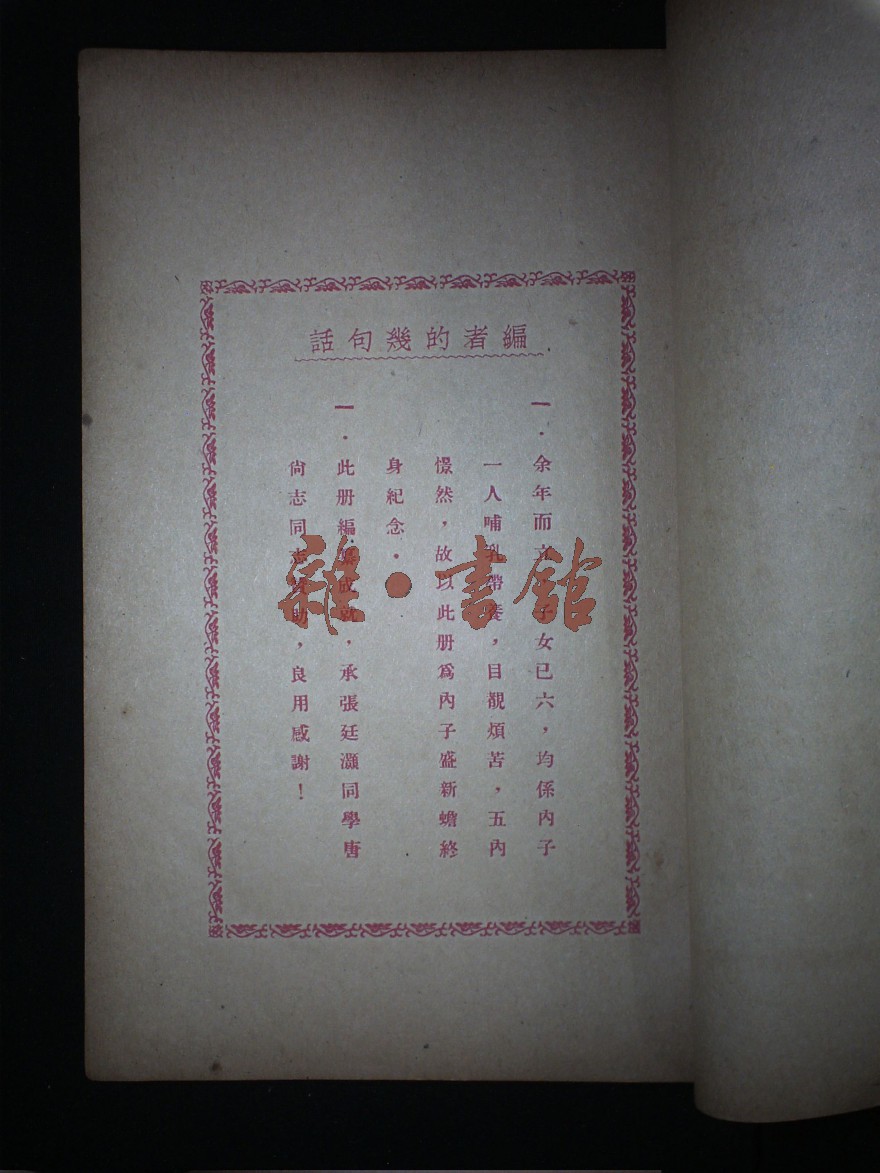 編者的幾句話
一．余年而立，子女已六，均係內子
一人哺乳帶養，目覩煩苦，五內
憬然，故以此册爲內子盛新蟾終
身紀念．
一．此册編纂成就，承張廷灝同學唐
尙志同志資助，良用感謝！
雜·書館